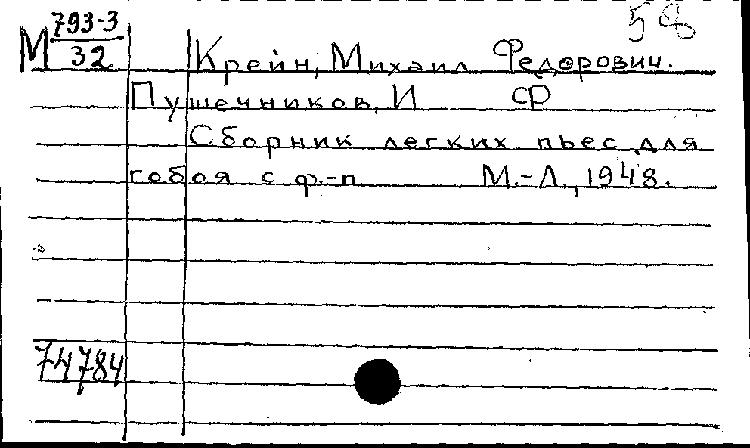 58
М 793-3
32
Крейн, Михаил Федорович.
Пушечников, И Ф
Сборник легких пьес для
гобоя с ф.-п М.-Л., 1948.
74784